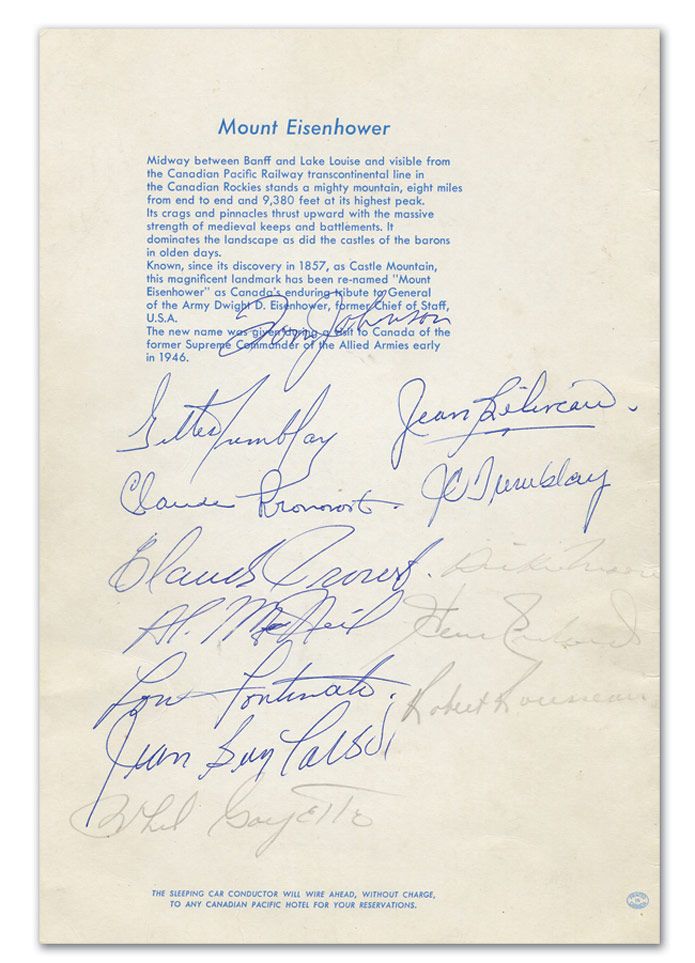 Mount Eisenhower
Midway between Banff and Lake Louise and visible from
the Canadian Pacific Railway transcontinental line in
the Canadian Rockies stands a mighty mountain, eight miles
from end to end and 9,380 feet at its highest peak.
Its crags and pinnacles thrust upward with the massive
strength of medieval keeps and battlements. It
dominates the landscape as did the castles of the barons
in olden days.
Known, since its discovery in 1857, as Castle Mountain,
this magnificent landmark has been re-named "Mount
Eisenhower" as Canada's enduring tribute to General
of the Army Dwight D. Eisenhower, former Chief of Staff,
U.S.A.
The new name was given during a visit to Canada of the
former Supreme Commander of the Allied Armies early
in 1946.
Tom Johnson
Gilles Tremblay
Jean Béliveau.
Claude Pronovost.
JC Tremblay
Claude Provost.
Dickie Moore
Al. McNeil
Henri Richard
Lou Fontinato.
Robert Rousseau
Jean Guy Talbot
Phil Goyette
THE SLEEPING CAR CONDUCTOR WILL WIRE AHEAD, WITHOUT CHARGE,
TO ANY CANADIAN PACIFIC HOTEL FOR YOUR RESERVATIONS.